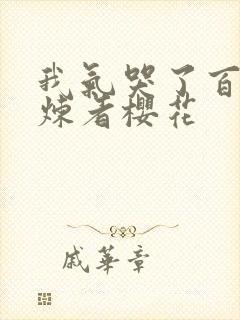 我氣哭了百
煉者櫻花
戚華章